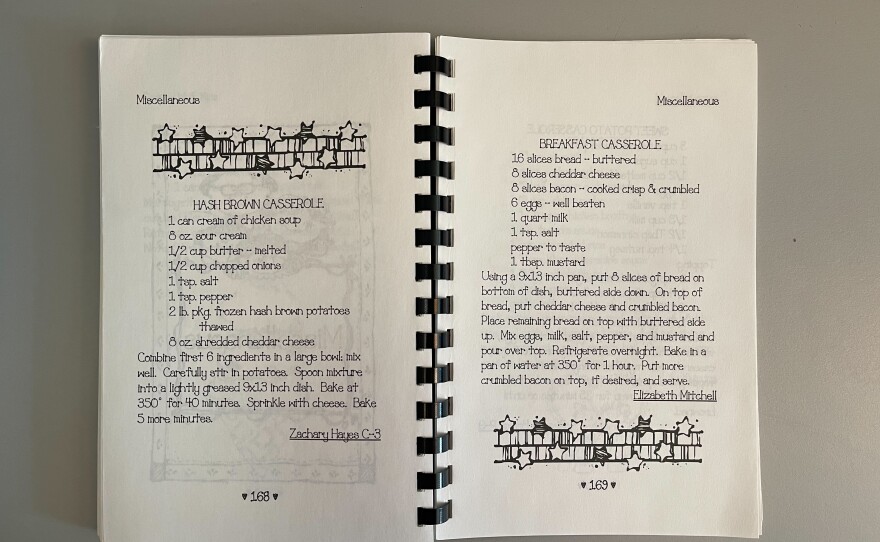 Miscellaneous
HASH BROWN CASSEROLE
1 can cream of chicken soup
8 oz. sour cream
1/2 cup butter -- melted
1/2 cup chopped onions
1 tsp. salt
1 tsp. pepper
2 lb. pkg. frozen hash brown potatoes
thawed
8 oz. shredded cheddar cheese
Combine first 6 ingredients in a large bowl: mix
well. Carefully stir in potatoes. Spoon mixture
into a lightly greased 9x13 inch dish. Bake at
350° for 40 minutes. Sprinkle with cheese. Bake
5 more minutes.
Zachary Hayes C-3
♥ 168 ♥
Miscellaneous
BREAKFAST CASSEROLE
16 slices bread -- buttered
8 slices cheddar cheese
8 slices bacon -- cooked crisp & crumbled
6 eggs -- well beaten
1 quart milk
1 tsp. salt
pepper to taste
1 tbsp. mustard
Using a 9x13 inch pan, put 8 slices of bread on
bottom of dish, buttered side down. On top of
bread, put cheddar cheese and crumbled bacon.
Place remaining bread on top with buttered side
up. Mix eggs, milk, salt, pepper, and mustard and
pour over top. Refrigerate overnight. Bake in a
pan of water at 350° for 1 hour. Put more
crumbled bacon on top, if desired, and serve.
Elizabeth Mitchell
♥ 169 ♥